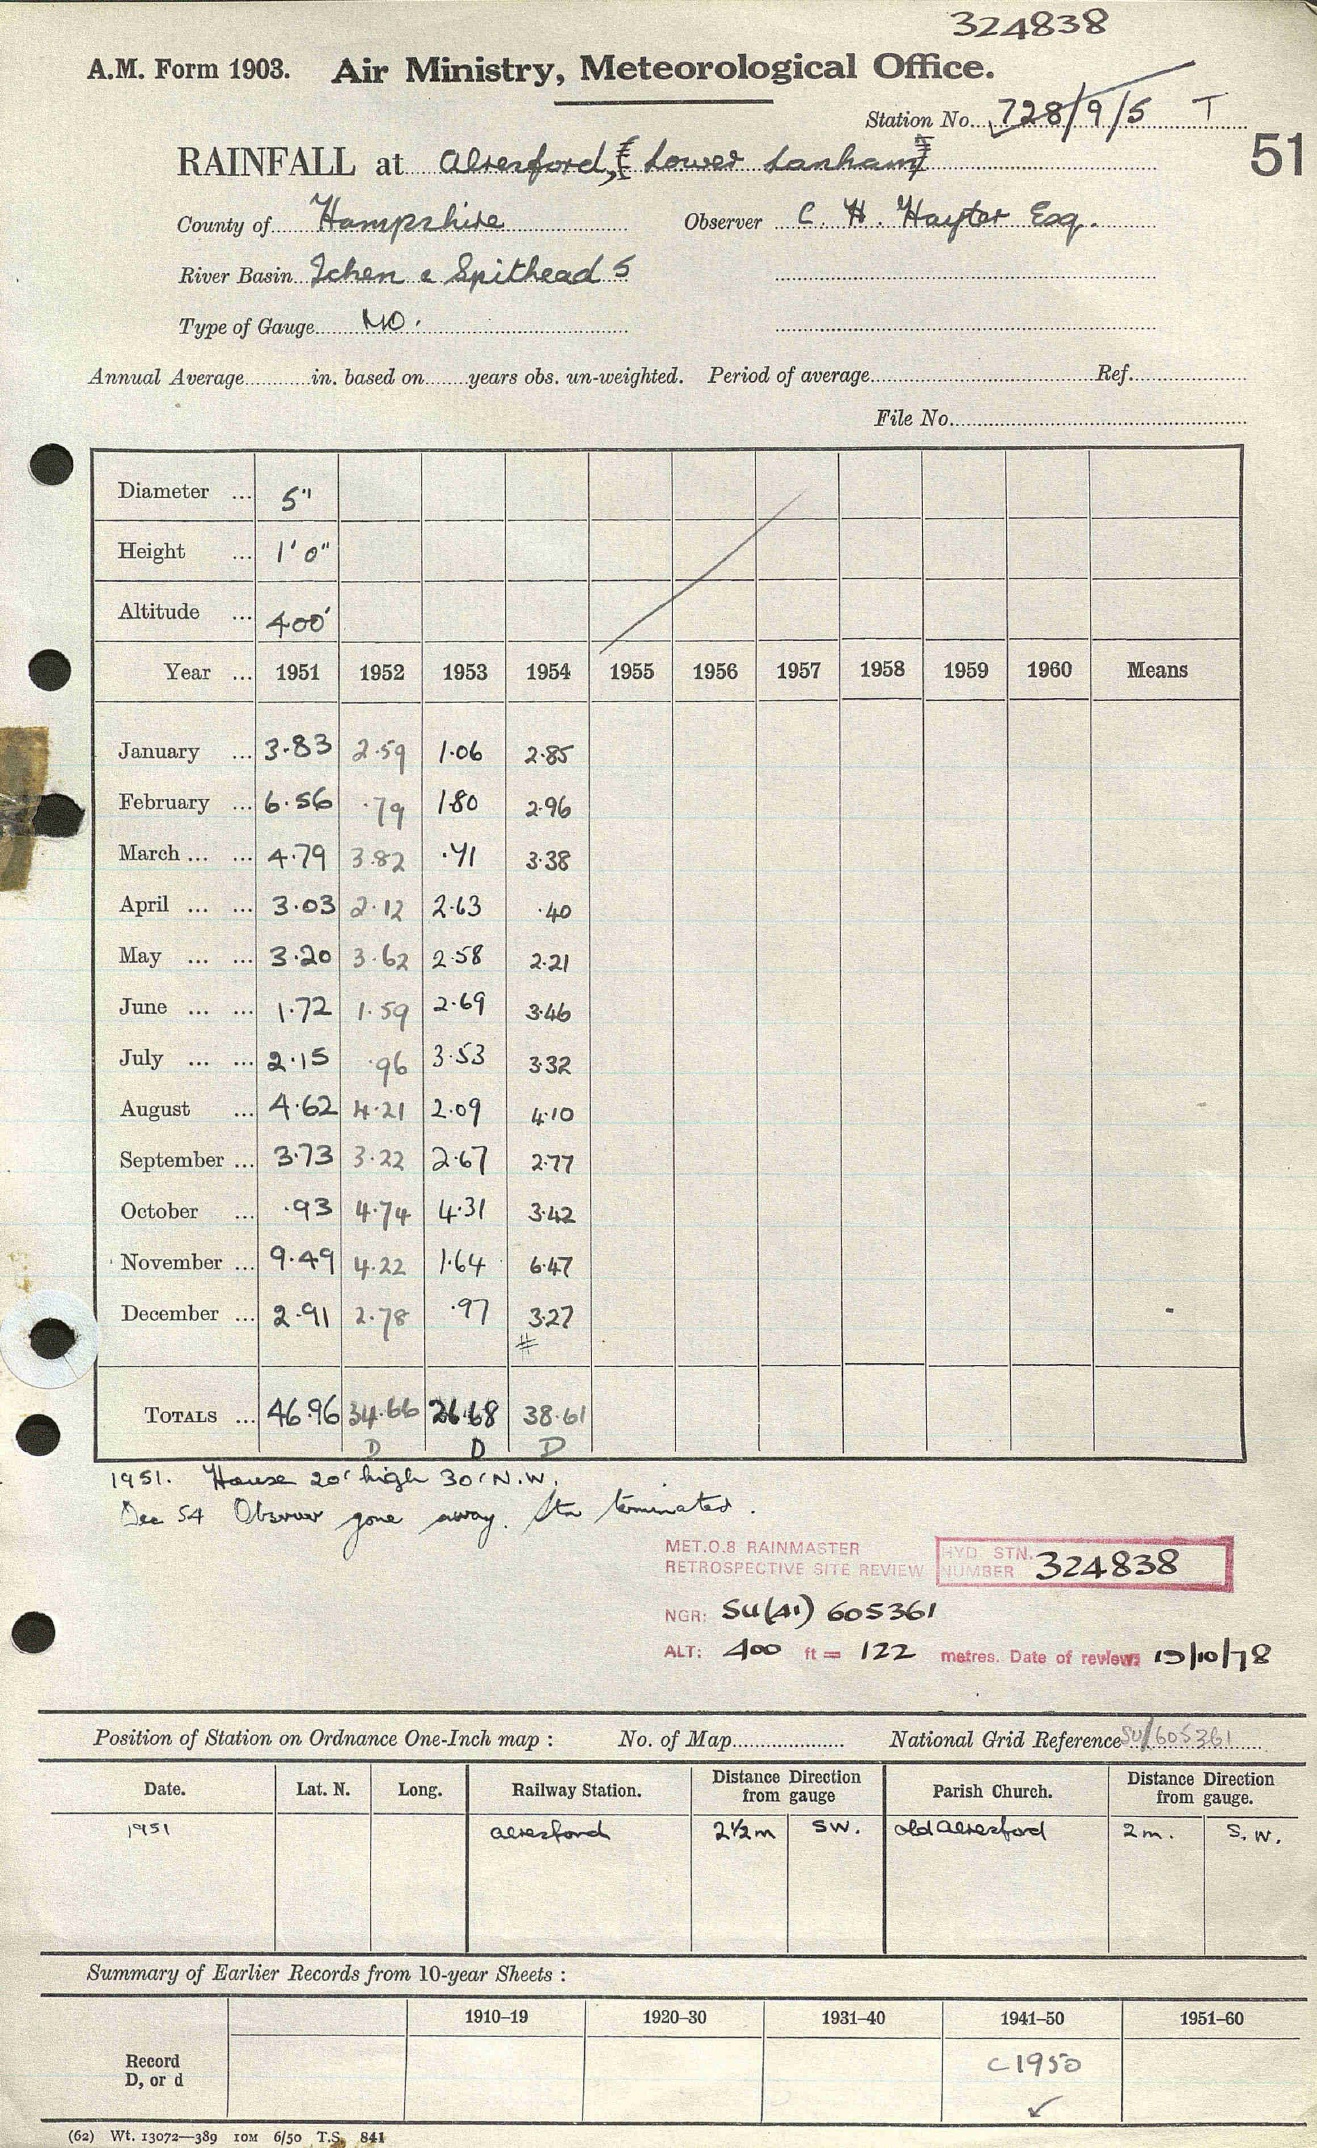 324838
A.M. Form 1903. Air Ministry, Meteorological Office.
Station No. 728/9/5 T
51
RAINFALL at Alresford, [Lower Lanham]
County of Hampshire Observer C. H. Hayter Esq.
River Basin Itchen & Spithead 5
Type of Gauge MO.
Annual Average in. based on years obs. un-weighted. Period of average Ref.
File No.
Diameter ... 5"
Height ... 1' 0"
Altitude ... 400'
Year ... 1951 1952 1953 1954 1955 1956 1957 1958 1959 1960 Means
January ... 3.83 2.59 1.06 2.85
February ... 6.56 .79 1.80 2.96
March ... ... 4.79 3.82 .71 3.38
April ... ... 3.03 2.12 2.63 .40
May ... ... 3.20 3.62 2.58 2.21
June ... ... 1.72 1.59 2.69 3.46
July ... ... 2.15 .96 3.53 3.32
August ... 4.62 4.21 2.09 4.10
September ... 3.73 3.22 2.67 2.77
October ... .93 4.74 4.31 3.42
November ... 9.49 4.22 1.64 6.47
December ... 2.91 2.78 .97 3.27
#
TOTALS ... 46.96 34.66 26.68 38.61
D D D
1951. House 20' high 30' N.W.
Dec 54 Observer gone away. Stn terminated.
MET.O.8 RAINMASTER
RETROSPECTIVE SITE REVIEW
HYD STN. NUMBER 324838
NGR: SU(41) 605361
ALT: 400 ft = 122 metres. Date of review: 19/10/78
Position of Station on Ordnance One-Inch map : No. of Map National Grid Reference SU/605361
Date. Lat. N. Long. Railway Station. Distance Direction from gauge Parish Church. Distance Direction from gauge.
1951 Alresford 2½m SW. Old Alresford 2m. S.W.
Summary of Earlier Records from 10-year Sheets :
1910–19 1920–30 1931–40 1941–50 1951–60
Record
D, or d
c 1950
✓
(62) Wt. 13072—389 10M 6/50 T.S. 841